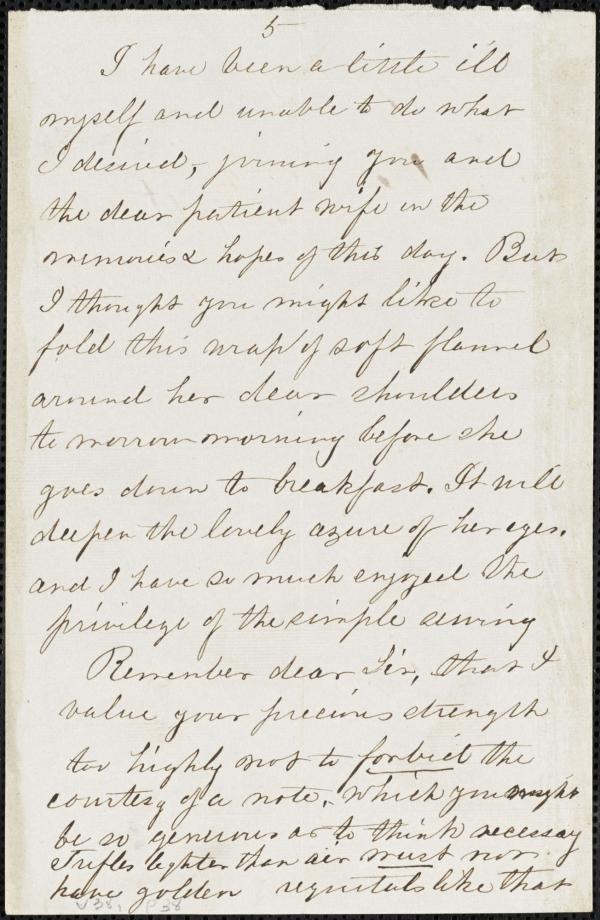 5
I have been a little ill
myself and unable to do what
I desired, joining you and
the dear patient wife in the
memories & hopes of this day. But
I thought you might like to
fold this wrap of soft flannel
around her dear shoulders
to morrow morning before she
goes down to breakfast. It will
deepen the lovely azure of her eyes.
and I have so much enjoyed the
privilege of the simple sewing
Remember dear Sir, that I
value your precious strength
too highly not to forbid the
courtesy of a note, which you might
be so generous as to think necessay
Trifles lighter than air must not
have golden requitals like that
V38, P38